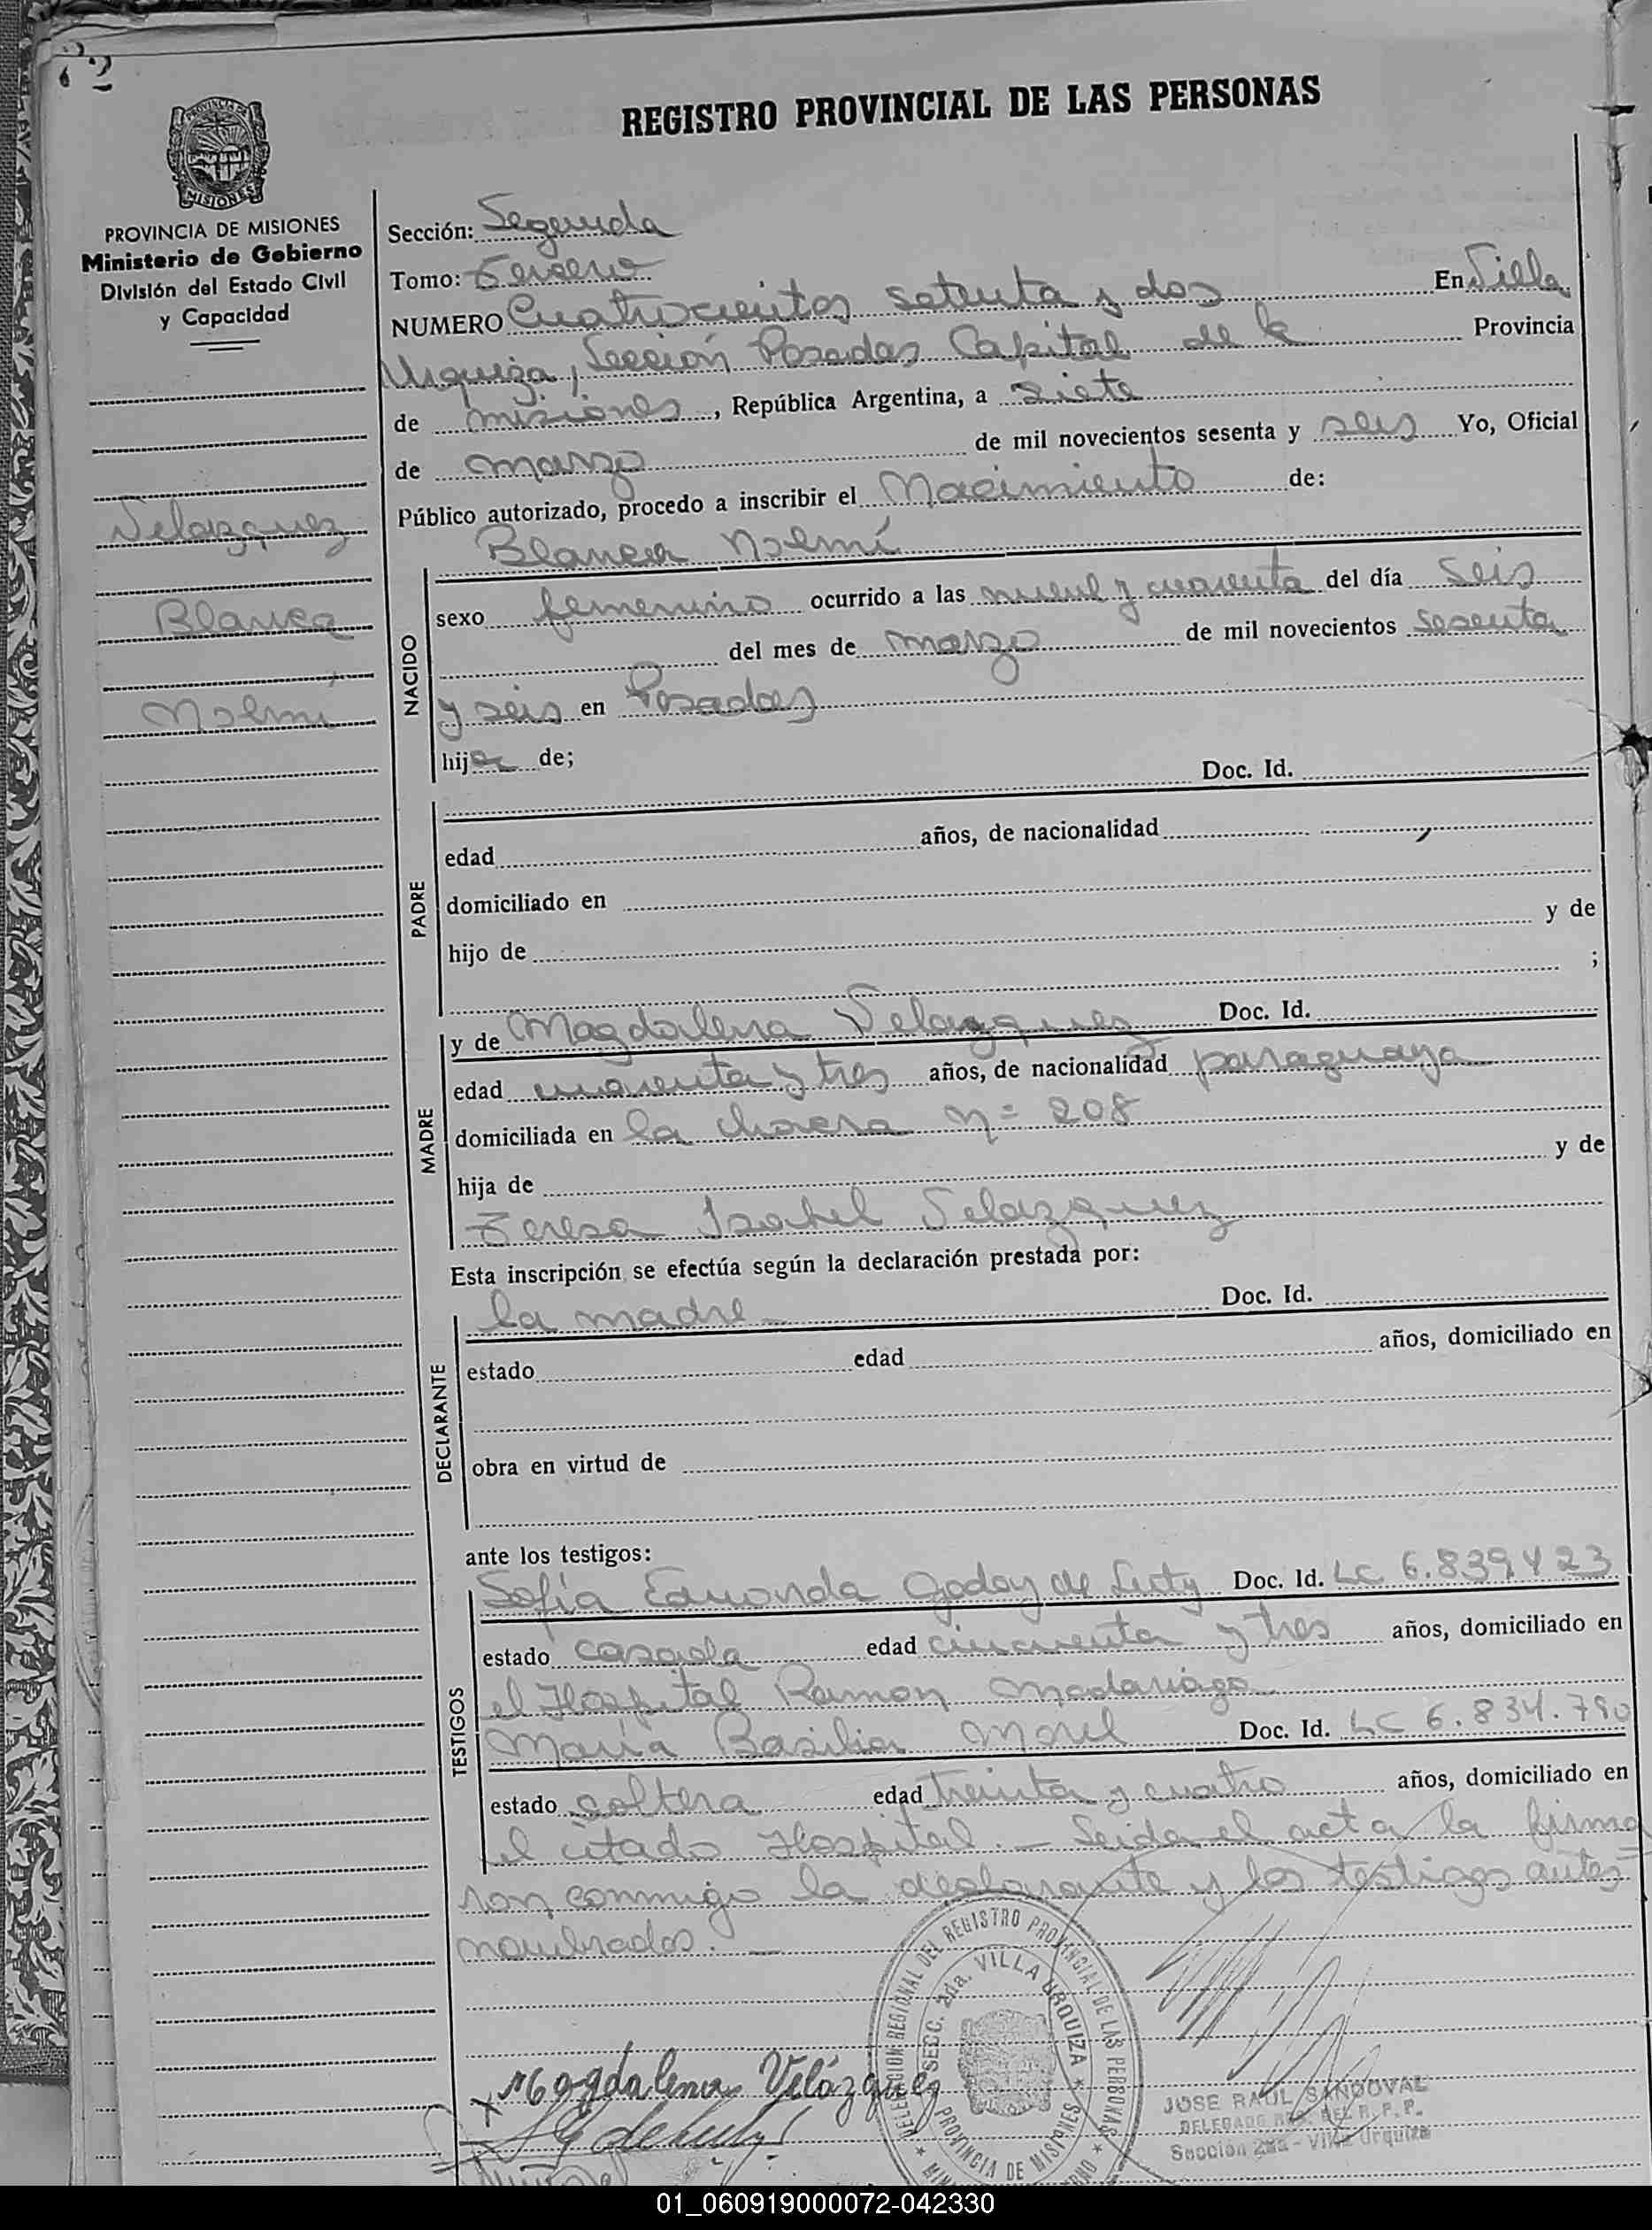 REGISTRO PROVINCIAL DE LAS PERSONAS
MISIONES
PROVINCIA DE MISIONES
Ministerio de Gobierno
División del Estado Civil
y Capacidad
Velazquez
Blanca
Noemí
Sección: Segunda
Tomo: Tercero
NUMERO Cuatrocientos setenta y dos En Villa
Urquiza, Sección Posadas Capital de la Provincia
de misiones, República Argentina, a siete
de marzo de mil novecientos sesenta y seis Yo, Oficial
Público autorizado, procedo a inscribir el Nacimiento de:
Blanca Noemí
NACIDO
sexo femenino ocurrido a las nueve y cuarenta del día seis
del mes de marzo de mil novecientos sesenta
y seis en Posadas
hija de;
PADRE
Doc. Id.
edad años, de nacionalidad
domiciliado en
hijo de y de
;
MADRE
y de Magdalena Velazquez Doc. Id.
edad cuarenta y tres años, de nacionalidad paraguaya
domiciliada en la chacra nº 208
hija de y de
Teresa Isabel Velazquez
Esta inscripción se efectúa según la declaración prestada por:
DECLARANTE
la madre Doc. Id.
estado edad años, domiciliado en
obra en virtud de
ante los testigos:
TESTIGOS
Sofía Godoy de Doc. Id. LC 6.839423
estado casada edad cincuenta y tres años, domiciliado en
el Hospital Ramon Madariaga
María Basilia Morel Doc. Id. LC 6.834.790
estado soltera edad treinta y cuatro años, domiciliado en
el citado Hospital. — Leida el acta la firma
ron conmigo la declarante y los testigos antes
nombrados. —
DELEGACION REGIONAL DEL REGISTRO PROVINCIAL DE LAS PERSONAS
SECC. 2da. VILLA URQUIZA
PROVINCIA DE MISIONES
x Magdalena Velázquez
JOSE RAUL SANDOVAL
DELEGADO REG. DEL R. P. P.
Sección 2da - Villa Urquiza
01_060919000072-042330